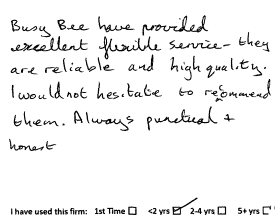 Busy Bee have provided
excellent flexible service - they
are reliable and high quality.
I would not hesitate to recommend
them. Always punctual +
honest
I have used this firm: 1st Time ☐ <2 yrs ☑ 2-4 yrs ☐ 5+ yrs ☐